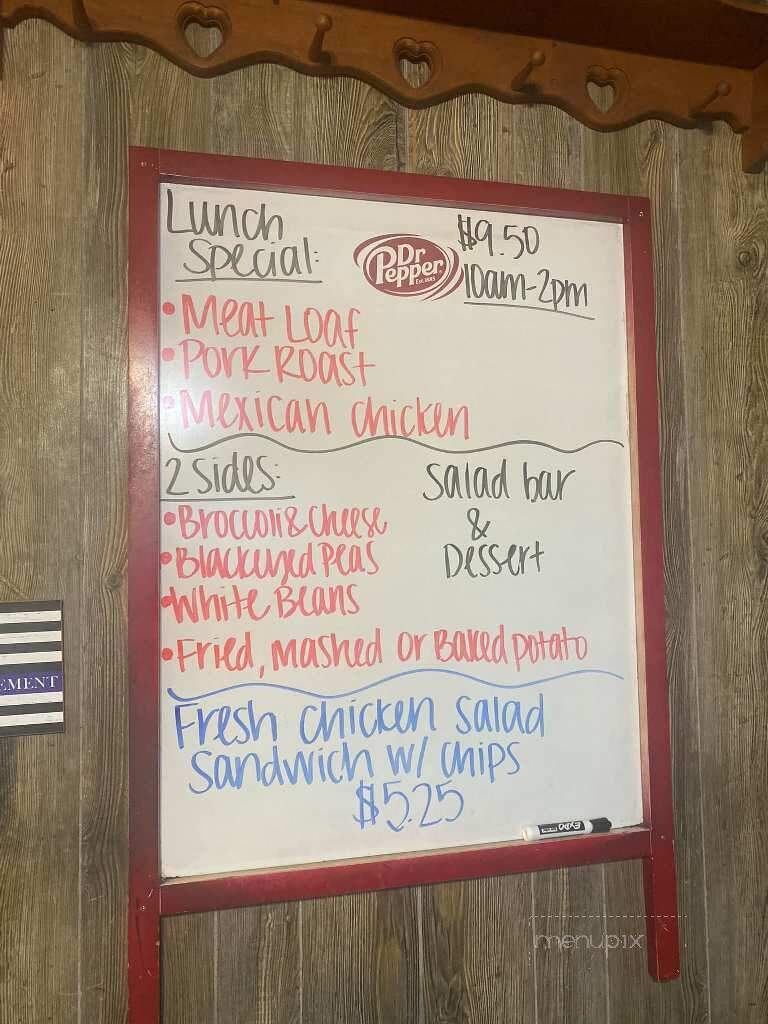 Lunch
Special:
Dr
Pepper
EST. 1885
$9.50
10am-2pm
• Meat Loaf
• Pork Roast
• Mexican Chicken
2 Sides:
• Broccoli & Cheese
• Blackeyed Peas
• White Beans
• Fried, Mashed or Baked potato
Salad bar
&
Dessert
Fresh Chicken Salad
Sandwich w/ Chips
$5.25
EXPO
EMENT
menupix